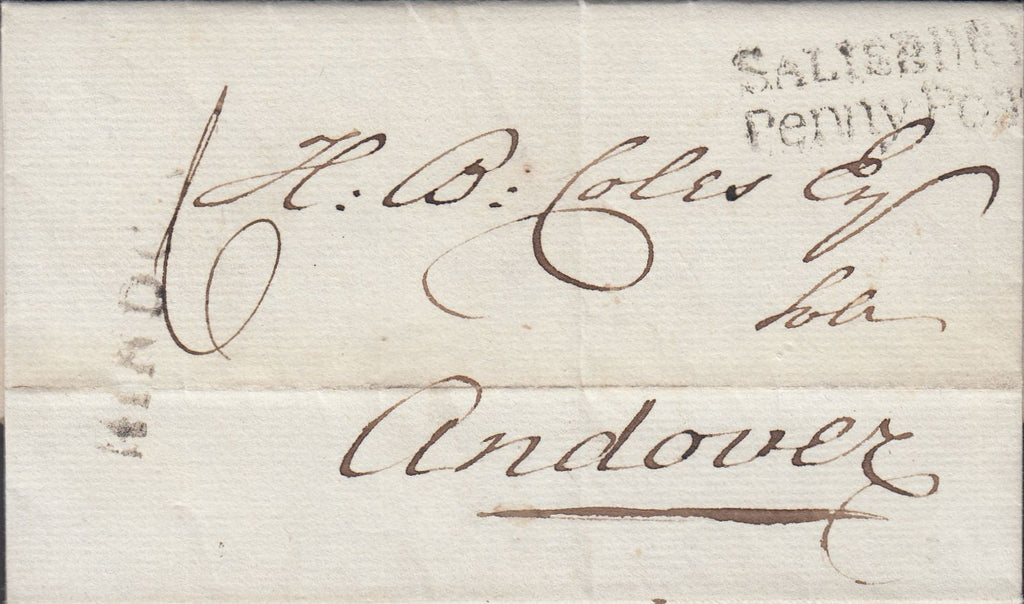 SALISBURY
Penny Post
H. B. Coles Esq
Solr
Andover